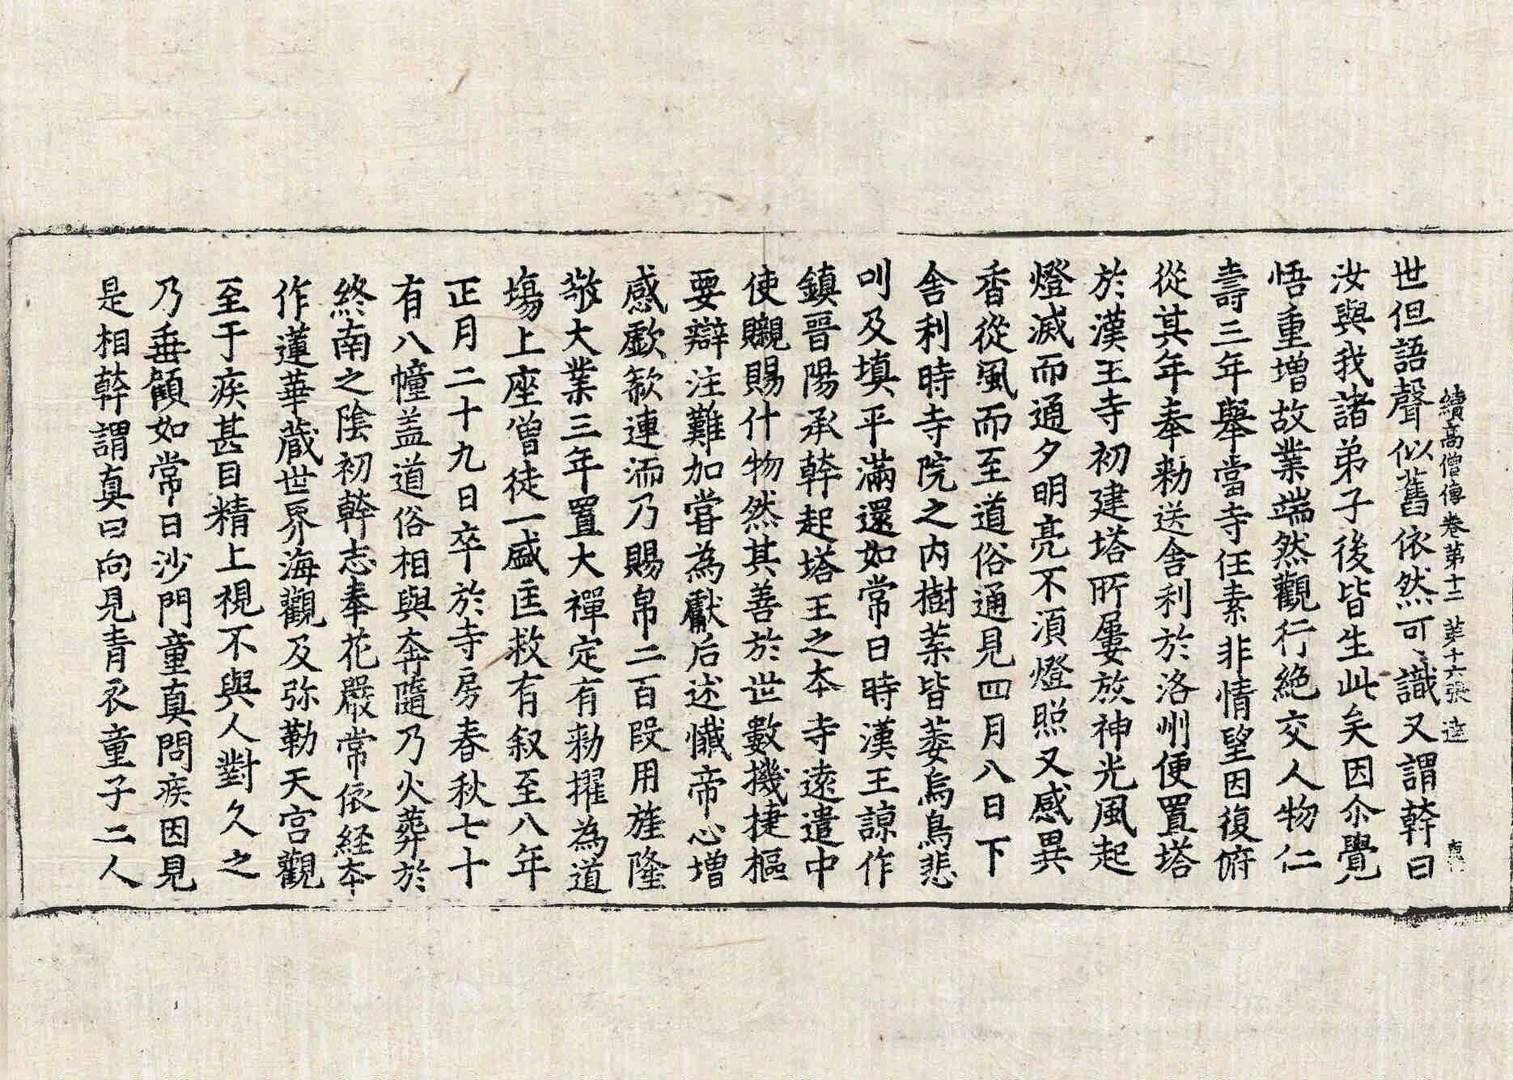 續高僧傳卷第十二　第十六張　達
世但語聲似舊依然可識又謂幹曰
汝與我諸弟子後皆生此矣因尒覺
悟重增故業端然觀行絶交人物仁
壽三年舉當寺任素非情望因復俯
從其年奉勑送舍利於洛州便置塔
於漢王寺初建塔所屢放神光風起
燈滅而通夕明亮不須燈照又感異
香從風而至道俗通見四月八日下
舍利時寺院之内樹葉皆萎烏鳥悲
叫及填平滿還如常日時漢王諒作
鎮晉陽承幹起塔王之本寺遠遣中
使贈賜什物然其善於世數機捷樞
要辯注難加嘗為獻后述懺帝心增
感歔欷連洏乃賜帛二百段用旌隆
敬大業三年置大禪定有勑擢為道
塲上座僧徒一盛匡救有叙至八年
正月二十九日卒於寺房春秋七十
有八幢盖道俗相與奔隨乃火葬於
終南之陰初幹志奉花嚴常依経本
作蓮華藏世界海觀及弥勒天宫觀
至于疾甚目精上視不與人對久之
乃垂顧如常日沙門童真問疾因見
是相幹謂真曰向見青衣童子二人